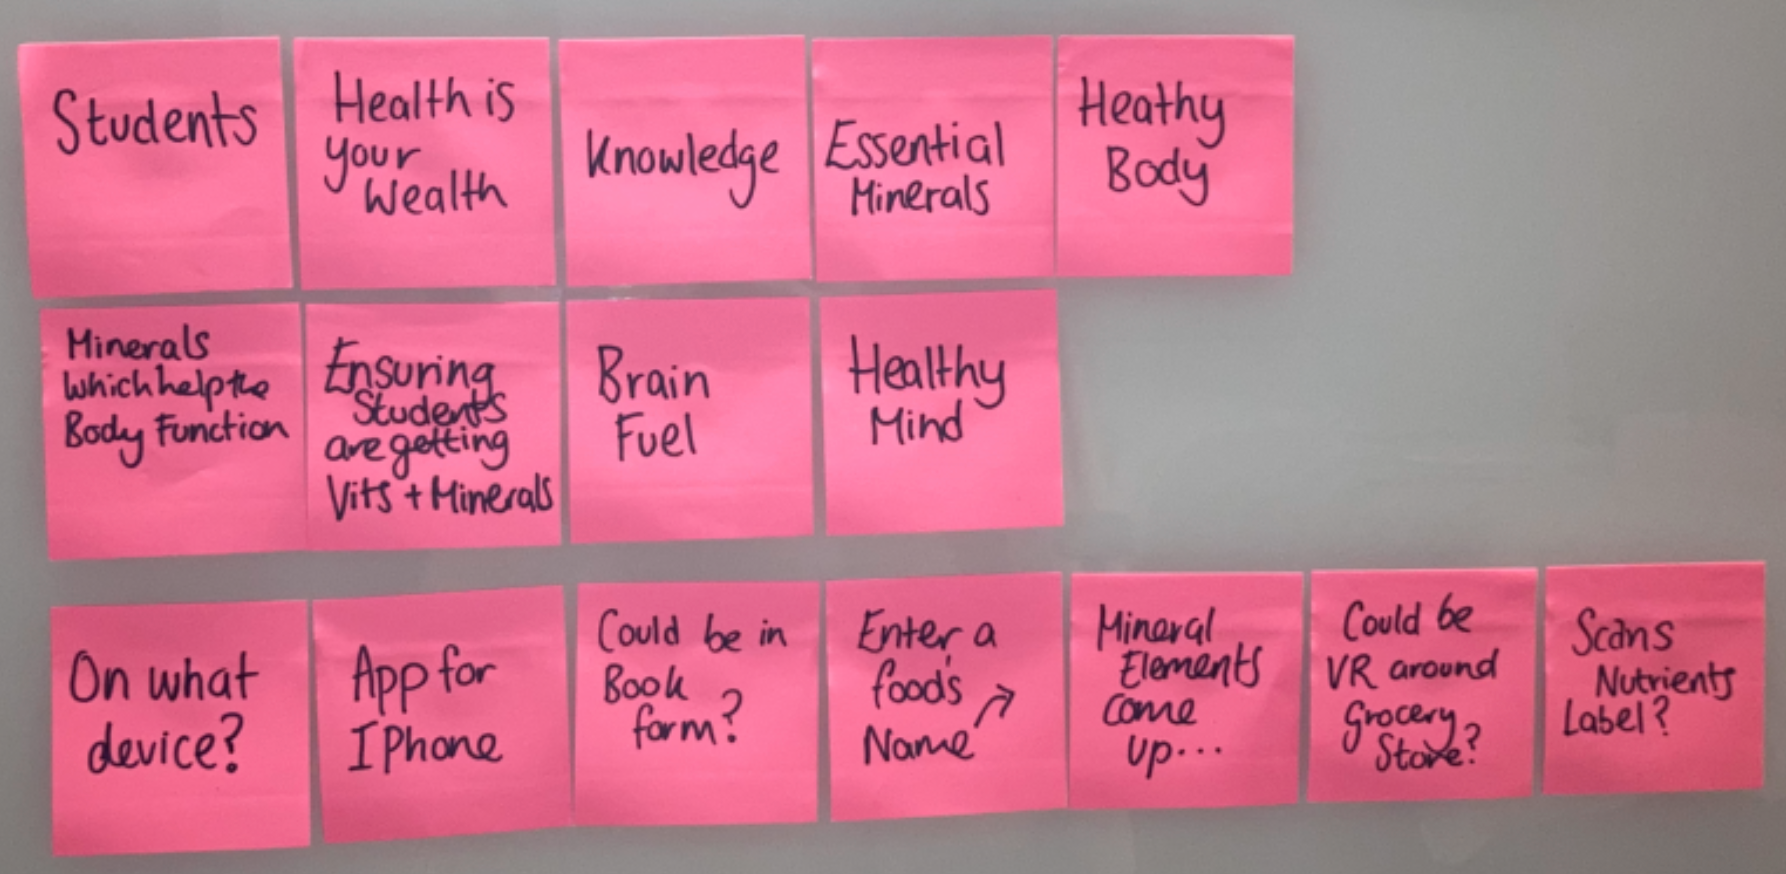 Students
Health is
your
Wealth
Knowledge
Essential
Minerals
Heathy
Body
Minerals
which help the
Body Function
Ensuring
Students
are getting
Vits + Minerals
Brain
Fuel
Healthy
Mind
On what
device?
App for
IPhone
Could be in
Book
form?
Enter a
food's
Name
Mineral
Elements
come
up...
Could be
VR around
Grocery
Store?
Scans
Nutrients
Label?